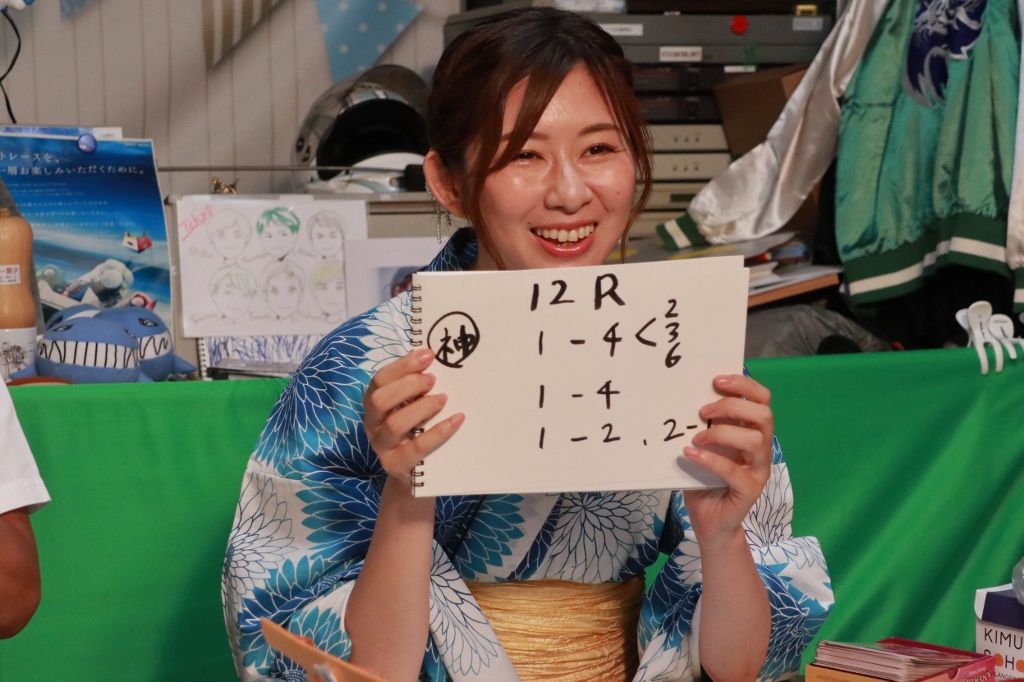 12 R
神 1 - 4 < 2 3 6
1 - 4
1 - 2 , 2 -
トレースを。
層お楽しみいただくために。
KIMU